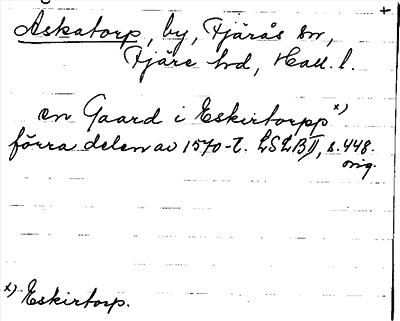 +
Askatorp, by, Fjärås sn,
Fjäre hd, Hall. l.
en Gaard i Eskirtorpp x)
förra delen av 1570-t. LSLB II, s. 448.
orig.
x) Eskirtorp.